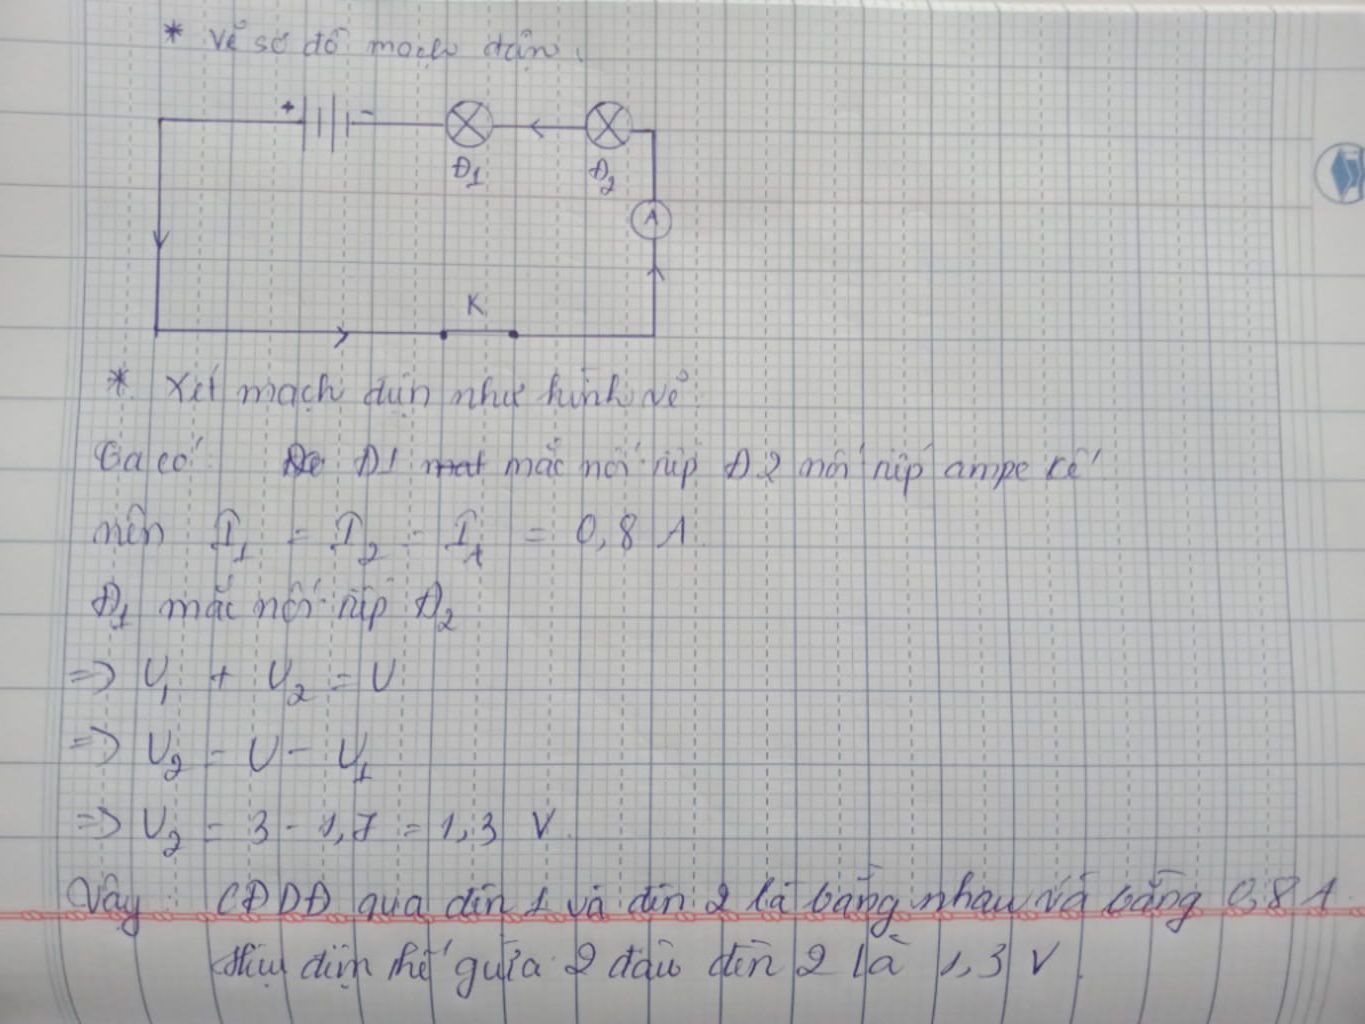 * Vẽ sơ đồ mạch điện.
+ -
Đ1 Đ2
A
K
* Xét mạch điện như hình vẽ
Ta có: Đ1 mắc nối tiếp Đ2 nối tiếp ampe kế
nên I1 = I2 = IA = 0,8 A.
Đ1 mắc nối tiếp Đ2
=> U1 + U2 = U
=> U2 = U - U1
=> U2 = 3 - 1,7 = 1,3 V.
Vậy: CĐDĐ qua đèn 1 và đèn 2 là bằng nhau và bằng 0,8 A.
Hiệu điện thế giữa 2 đầu đèn 2 là 1,3 V.